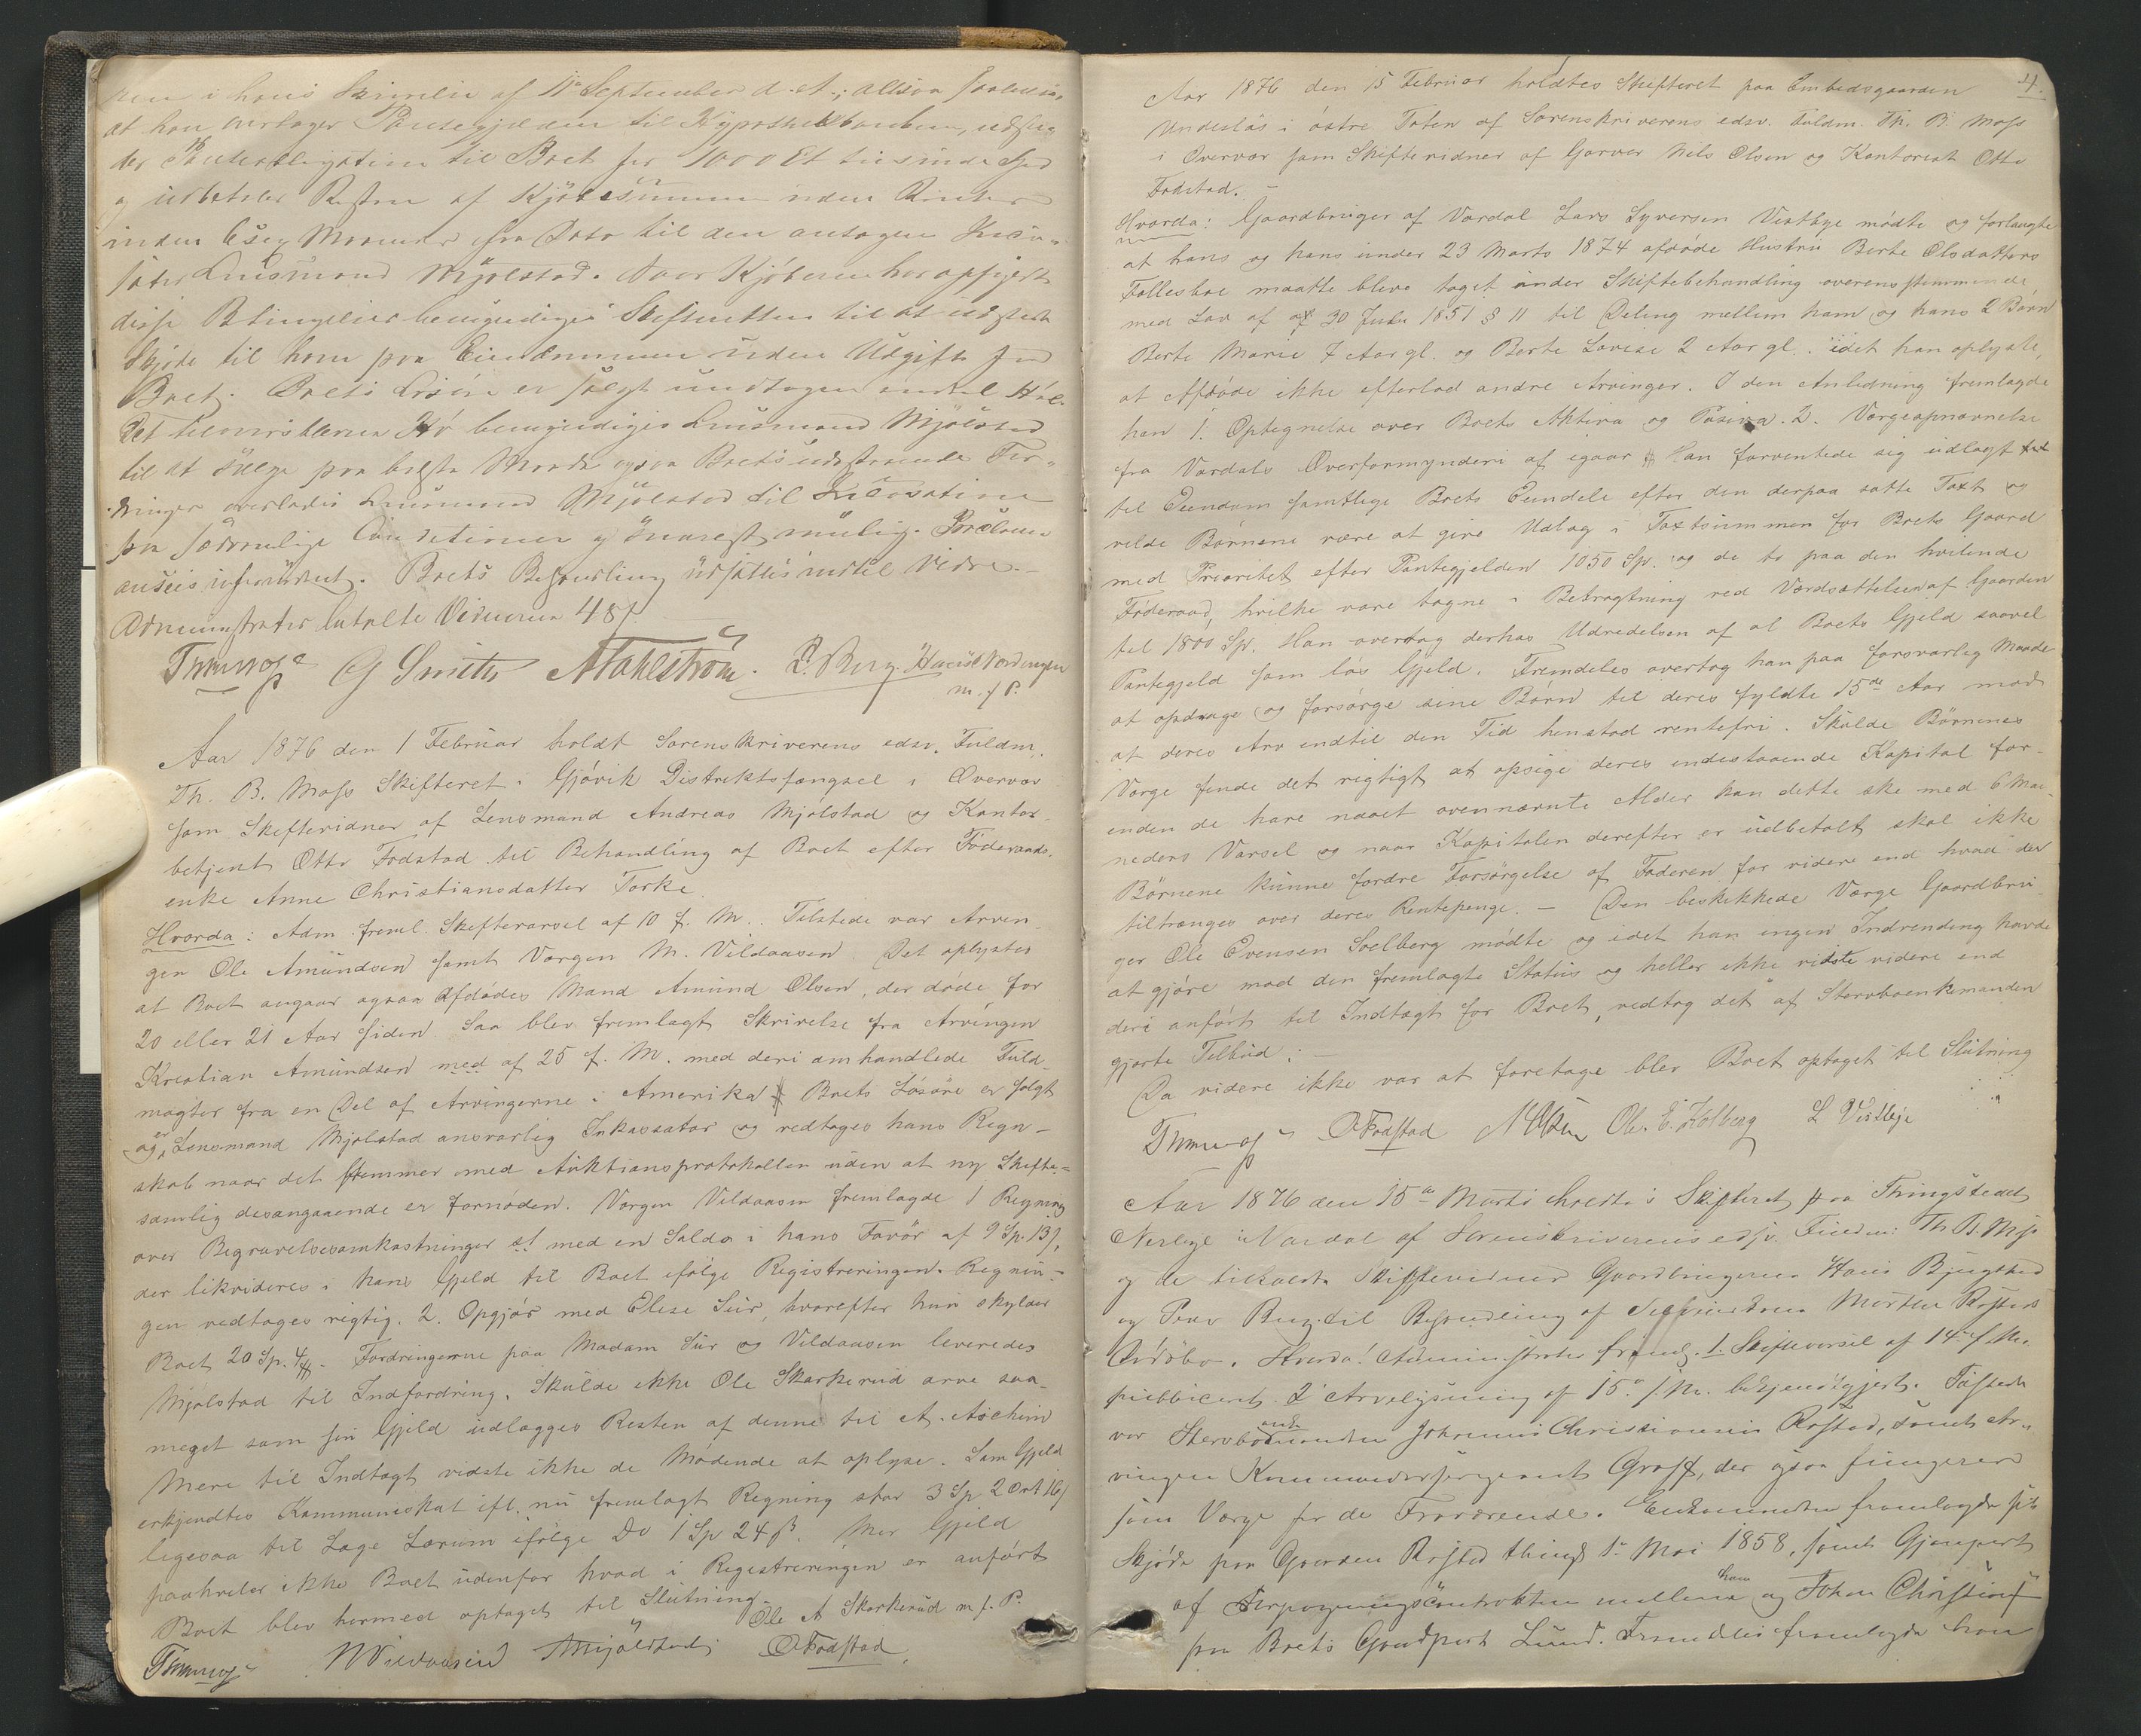 pen i hans Skrivelse af 11te September d. A.; altsaa saaledes,
at han overtager Pantegjælden til Hypothekbanken, udste-
der Panteobligation til Boet for 1000 Et tusinde Spd
og udbetaler Resten af Kjøbesummen uden Renter
inden 6 sex Maaneder fra Dato til den antagne Inkas-
sator Lensmand Mjølstad. Naar Kjøberen har opfyldt
disse Betingelser bemyndiges Skifteretten til at udstede
Skjøde til ham paa Eiendommen uden Udgift for
Boet. Boets Løsøre er solgt undtagen endel Hø.
Det tiloversblevne Hø bemyndiges Lensmand Mjølstad
til at sælge paa bedste Maade ogsaa Boets udestaaende For-
dringer overlades Lensmand Mjølstad til Inkassation
paa sædvanlige Conditioner og snarest mulig.
ansees ufornødent. Boets Behandling udsættes indtil videre.
Administrator betalte Vidnerne 48 ß
G Smith AFahlstrøm. P. Berg.
m. f. P.
Aar 1876 den 1 Februar holdt Sorenskriverens edsv. Fuldm.
Th. B. Moss Skifteret i Gjøvik Distriktsfængsel i Overvær
som Skiftevidner af Lensmand Andreas Mjølstad og Kontor-
betjent Otto Fodstad til Behandling af Boet efter Føderaads-
enke Anne Christiansdatter Torke.
Hvorda: Adm. freml. Skiftevarsel af 10 f. M. Tilstede var Arvin-
gen Ole Amundsen samt Værgen M. Vildaasen. Det oplystes
at Boet angaar ogsaa Afdødes Mand Amund Olsen, der døde for
20 eller 21 Aar siden. Saa blev fremlagt Skrivelse fra Arvingen
Kristian Amundsen med af 25 f. M. med deri omhandlede Fuld-
magter fra en Del af Arvingerne i Amerika # Boets Løsøre er solgt
og er Lensmand Mjølstad ansvarlig Inkassator og vedtages hans Regn-
skab naar det stemmer med Auktionsprotokollen uden at ny Skifte-
samling desangaaende er fornøden. Værgen Vildaasen fremlagde 1 Regning
over Begravelsesomkostninger st med en Saldo i hans Favør af 9 Sp. 13 ß,
der likvideres i hans Gjeld til Boet ifølge Registreringen. Regnin-
gen vedtages rigtig. 2. Opgjør med Elise Sur, hvorefter hun skylder
Boet 20 Sp. 4 ß. Fordringerne paa Madam Sur og Vildaasen leveredes
Mjølstad til Indfordring. Skulde ikke Ole Skarkerud arve saa-
meget som sin Gjeld udlægges Resten af denne til A. Aschim
Mere til Indtægt vidste ikke de Mødende at oplyse. Som Gjeld
erkjendtes Kommuneskat ifl. nu fremlagt Regning stor 3 Sp 2 Ort 16 ß
ligesaa til Lage Lærum ifølge Do 1 Sp 24 ß. Mer Gjeld
paahviler ikke Boet udenfor hvad i Registreringen er anført
Boet blev hermed optaget til Slutning.
Ole A Skarkerud m. f. P.
MVildaasen AMjølstad OFodstad
4.
Aar 1876 den 15 Februar holdtes Skifteret paa Embedsgaarden
Undeslös i østre Toten af Sorenskriverens edsv. Fuldm. Th. B. Moss
i Overvær som Skiftevidner af Garver Nils Olsen og Kontorist Otto
Fodstad. -
Hvorda: Gaardbruger af Vardal Lars Syversen Vestbye mødte og forlangte
at hans og hans under 23 Marts 1874 afdøde Hustru Berte Olsdatters
Fællesboe maatte bleve taget under Skiftebehandling overensstemmende
med Lov af af 30 Juli 1851 § 11 til Deling mellem ham og hans 2 Børn
Berte Marie 7 Aar gl. og Berte Lovise 2 Aar gl. idet han oplyste,
at Afdøde ikke efterlod andre Arvinger. I den Anledning fremlagde
han 1. Optegnelse over Boets Aktiva og Pasiva. 2. Værgeopnævnelse
fra Vardals Overformynderi af igaar # Han forventede sig udlagt
til Eiendom samtlige Boets Eiendele efter den derpaa satte Taxt og
vilde Børnene være at give Udlæg i Taxtsummen for Boets Gaard
med Prioritet efter Pantegjelden 1050 Sp. og de to paa den hvilende
Føderaad, hvilke vare tagne i Betragtning ved Værdsættelsen af Gaarden
til 1800 Sp. Han overtog derhos Udredelsen af al Boets Gjeld saavel
Pantegjeld som løs Gjeld. Fremdeles overtog han paa forsvarlig Maade
at opdrage og forsørge sine Børn til deres fyldte 15de Aar mod
at deres Arv indtil den Tid henstod rentefri. Skulde Børnenes
Værge finde det rigtigt at opsige deres indestaaende Kapital for-
inden de have naaet ovennævnte Alder kan dette ske med 6 Maa-
neders Varsel og naar Kapitalen derefter er udbetalt skal ikke
Børnene kunne fordre Forsørgelse af Faderen for videre end hvad der
tiltrænges over deres Rentepenge. — Den beskikkede Værge Gaardbru-
ger Ole Evensen Soelberg mødte og idet han ingen Indvending havde
at gjøre mod den fremlagte Status og heller ikke vidste videre end
deri anført til Indtægt for Boet, vedtog det af Stervboenkemanden
gjorte Tilbud: —
Da videre ikke var at foretage blev Boet optaget til Slutning
OFodstad N Olsen Ole E. Solberg L Vestbye
Aar 1876 den 15de Marts holdtes Skifteret paa Thingstedet
Nerlye i Vardal af Sorenskriverens edsv. Fuldm: Th. B. Moss
og de tilkaldte Skiftevidner Gaardbrugerne Hans Bjugstad
og Peder Berg til Behandling af Morten Rosteds
Dødsbo. Hvorda: Administrator freml. 1. Skiftevarsel af 14. f. M.
publiceret. 2 Arvelysning af 15. f. M. bekjendtgjort. Tilstede
var Stervboenkemanden Johannes Christiansen Rosted, samt Ar-
vingen Kommandersergeant Graff, der ogsaa fungerer
som Værge for de Fraværende. Enkemanden fremlagde sit
Skjøde paa Gaarden Rosted thingl. 1. Mai 1858, samt Gjenpart
af Forpagtningscontrakten mellem ham og Johan Christians
paa Boets Gaardpart Lund. Fremdeles fremlagde han